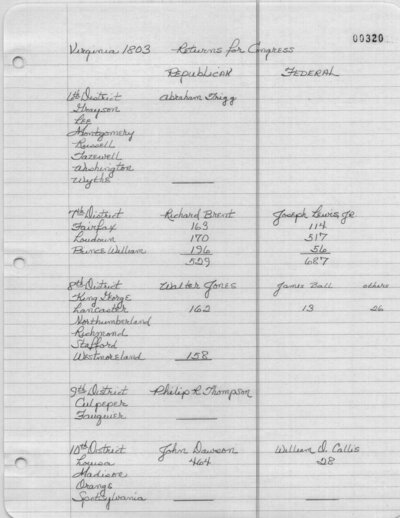 00320
Virginia 1803 Returns for Congress
REPUBLICAN FEDERAL
6th District Abraham Trigg
Grayson
Lee
Montgomery
Russell
Tazewell
Washington
Wythe
7th District Richard Brent Joseph Lewis Jr
Fairfax 163 114
Loudoun 170 517
Prince William 196 56
529 687
8th District Walter Jones James Ball others
King George
Lancaster 162 13 26
Northumberland
Richmond
Stafford
Westmoreland 158
9th District Philip R. Thompson
Culpeper
Fauquier
10th District John Dawson William O. Callis
Louisa 464 28
Madison
Orange
Spotsylvania